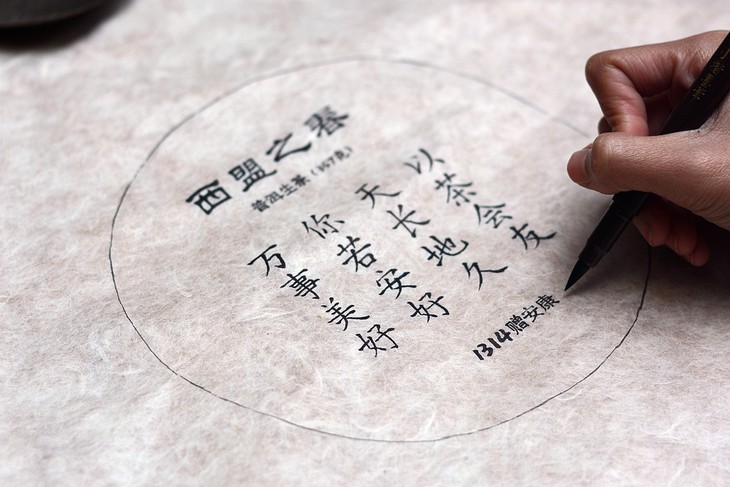 西盟之春
普洱生茶(357克)
以茶会友
天长地久
你若安好
万事美好
1314赠安康